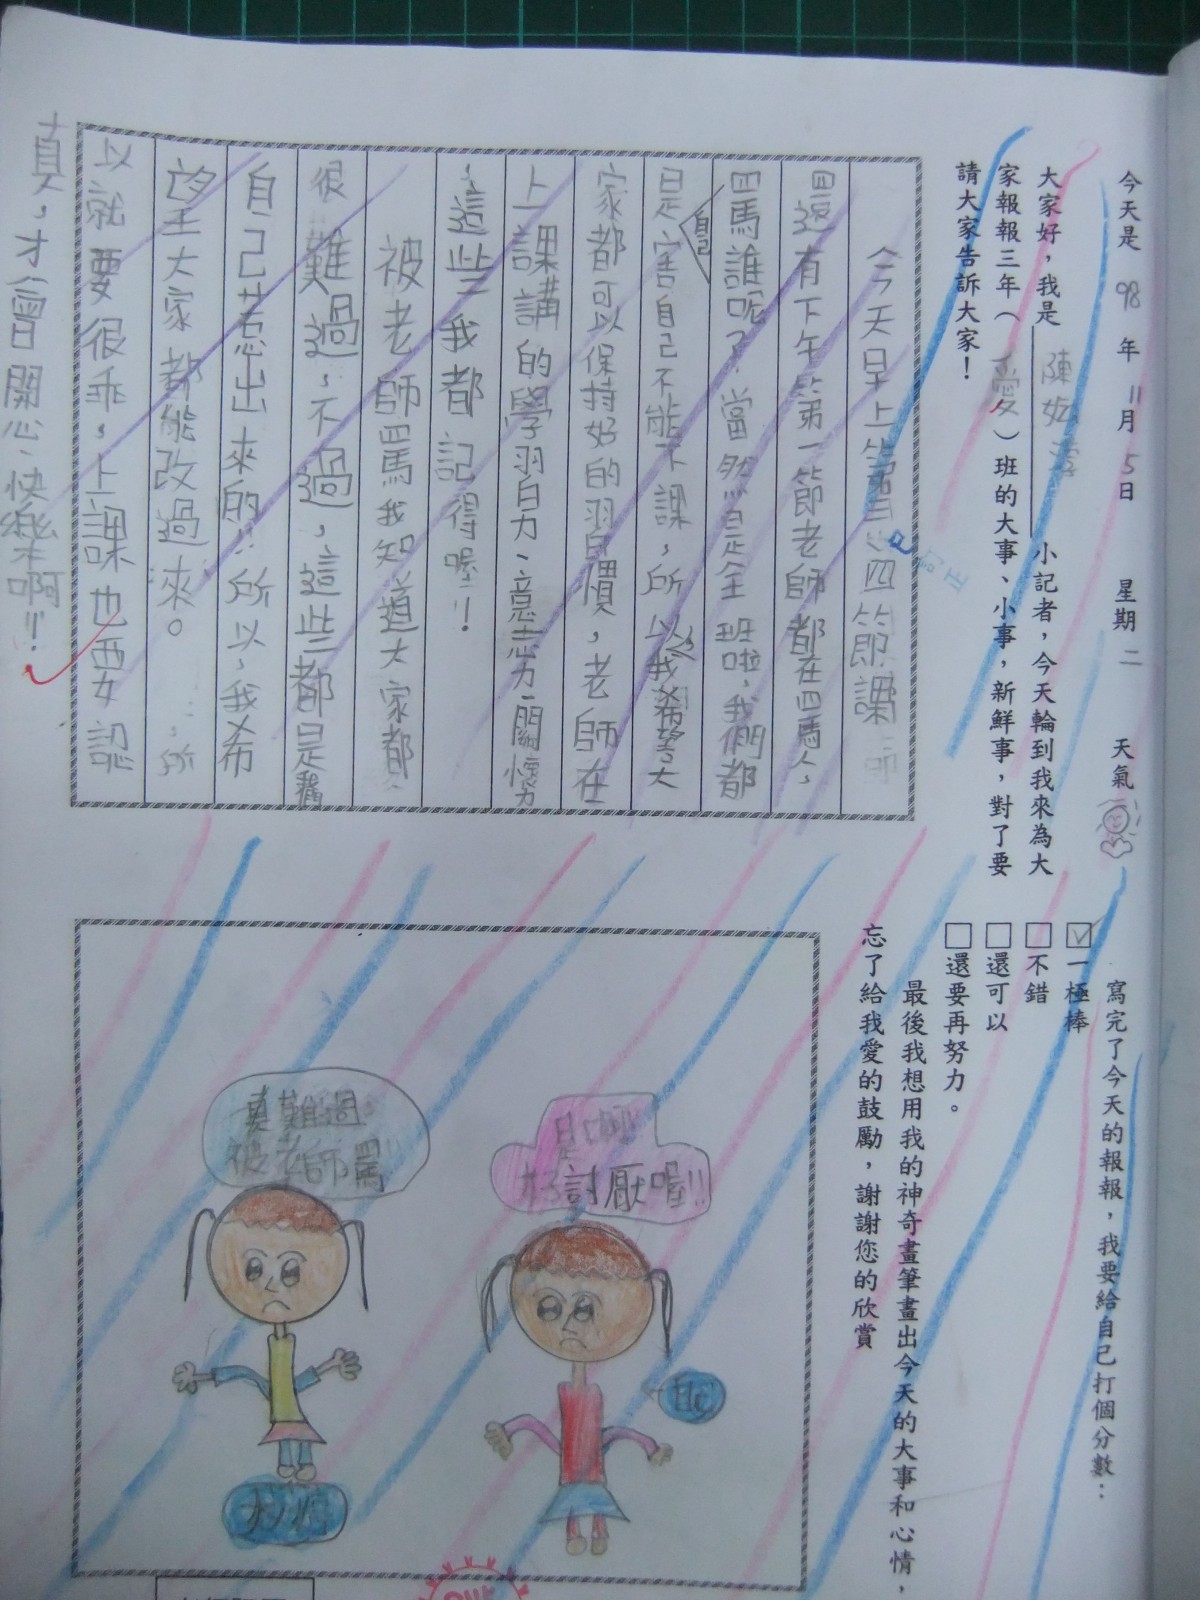 今天是 98 年 11 月 5 日 星期 二 天氣
大家好，我是 陳 小記者，今天輪到我來為大
家報報三年（ 愛 ）班的大事、小事，新鮮事，對了要
請大家告訴大家！
訂正
今天早上第 四節課
還有下午第一節老師都在罵人，
罵誰呢？當然是全班啦，我們都
是害自己不能下課，所以我希望大
自己
家都可以保持好的習慣，老師在
上課講的學習力、意志力、關懷力
，這些我都記得喔！！
被老師罵我知道大家都
很難過，不過，這些都是我
自己惹出來的！！所以，我希
望大家都能改過來。 所
以就要很乖，上課也要認
真，才會開心、快樂啊！！
寫完了今天的報報，我要給自己打個分數：
☑一極棒
□不錯
□還可以
□還要再努力。
最後我想用我的神奇畫筆畫出今天的大事和心情，
忘了給我愛的鼓勵，謝謝您的欣賞
是啊！！
好討厭喔！！
自己
真難過
被老師罵！！